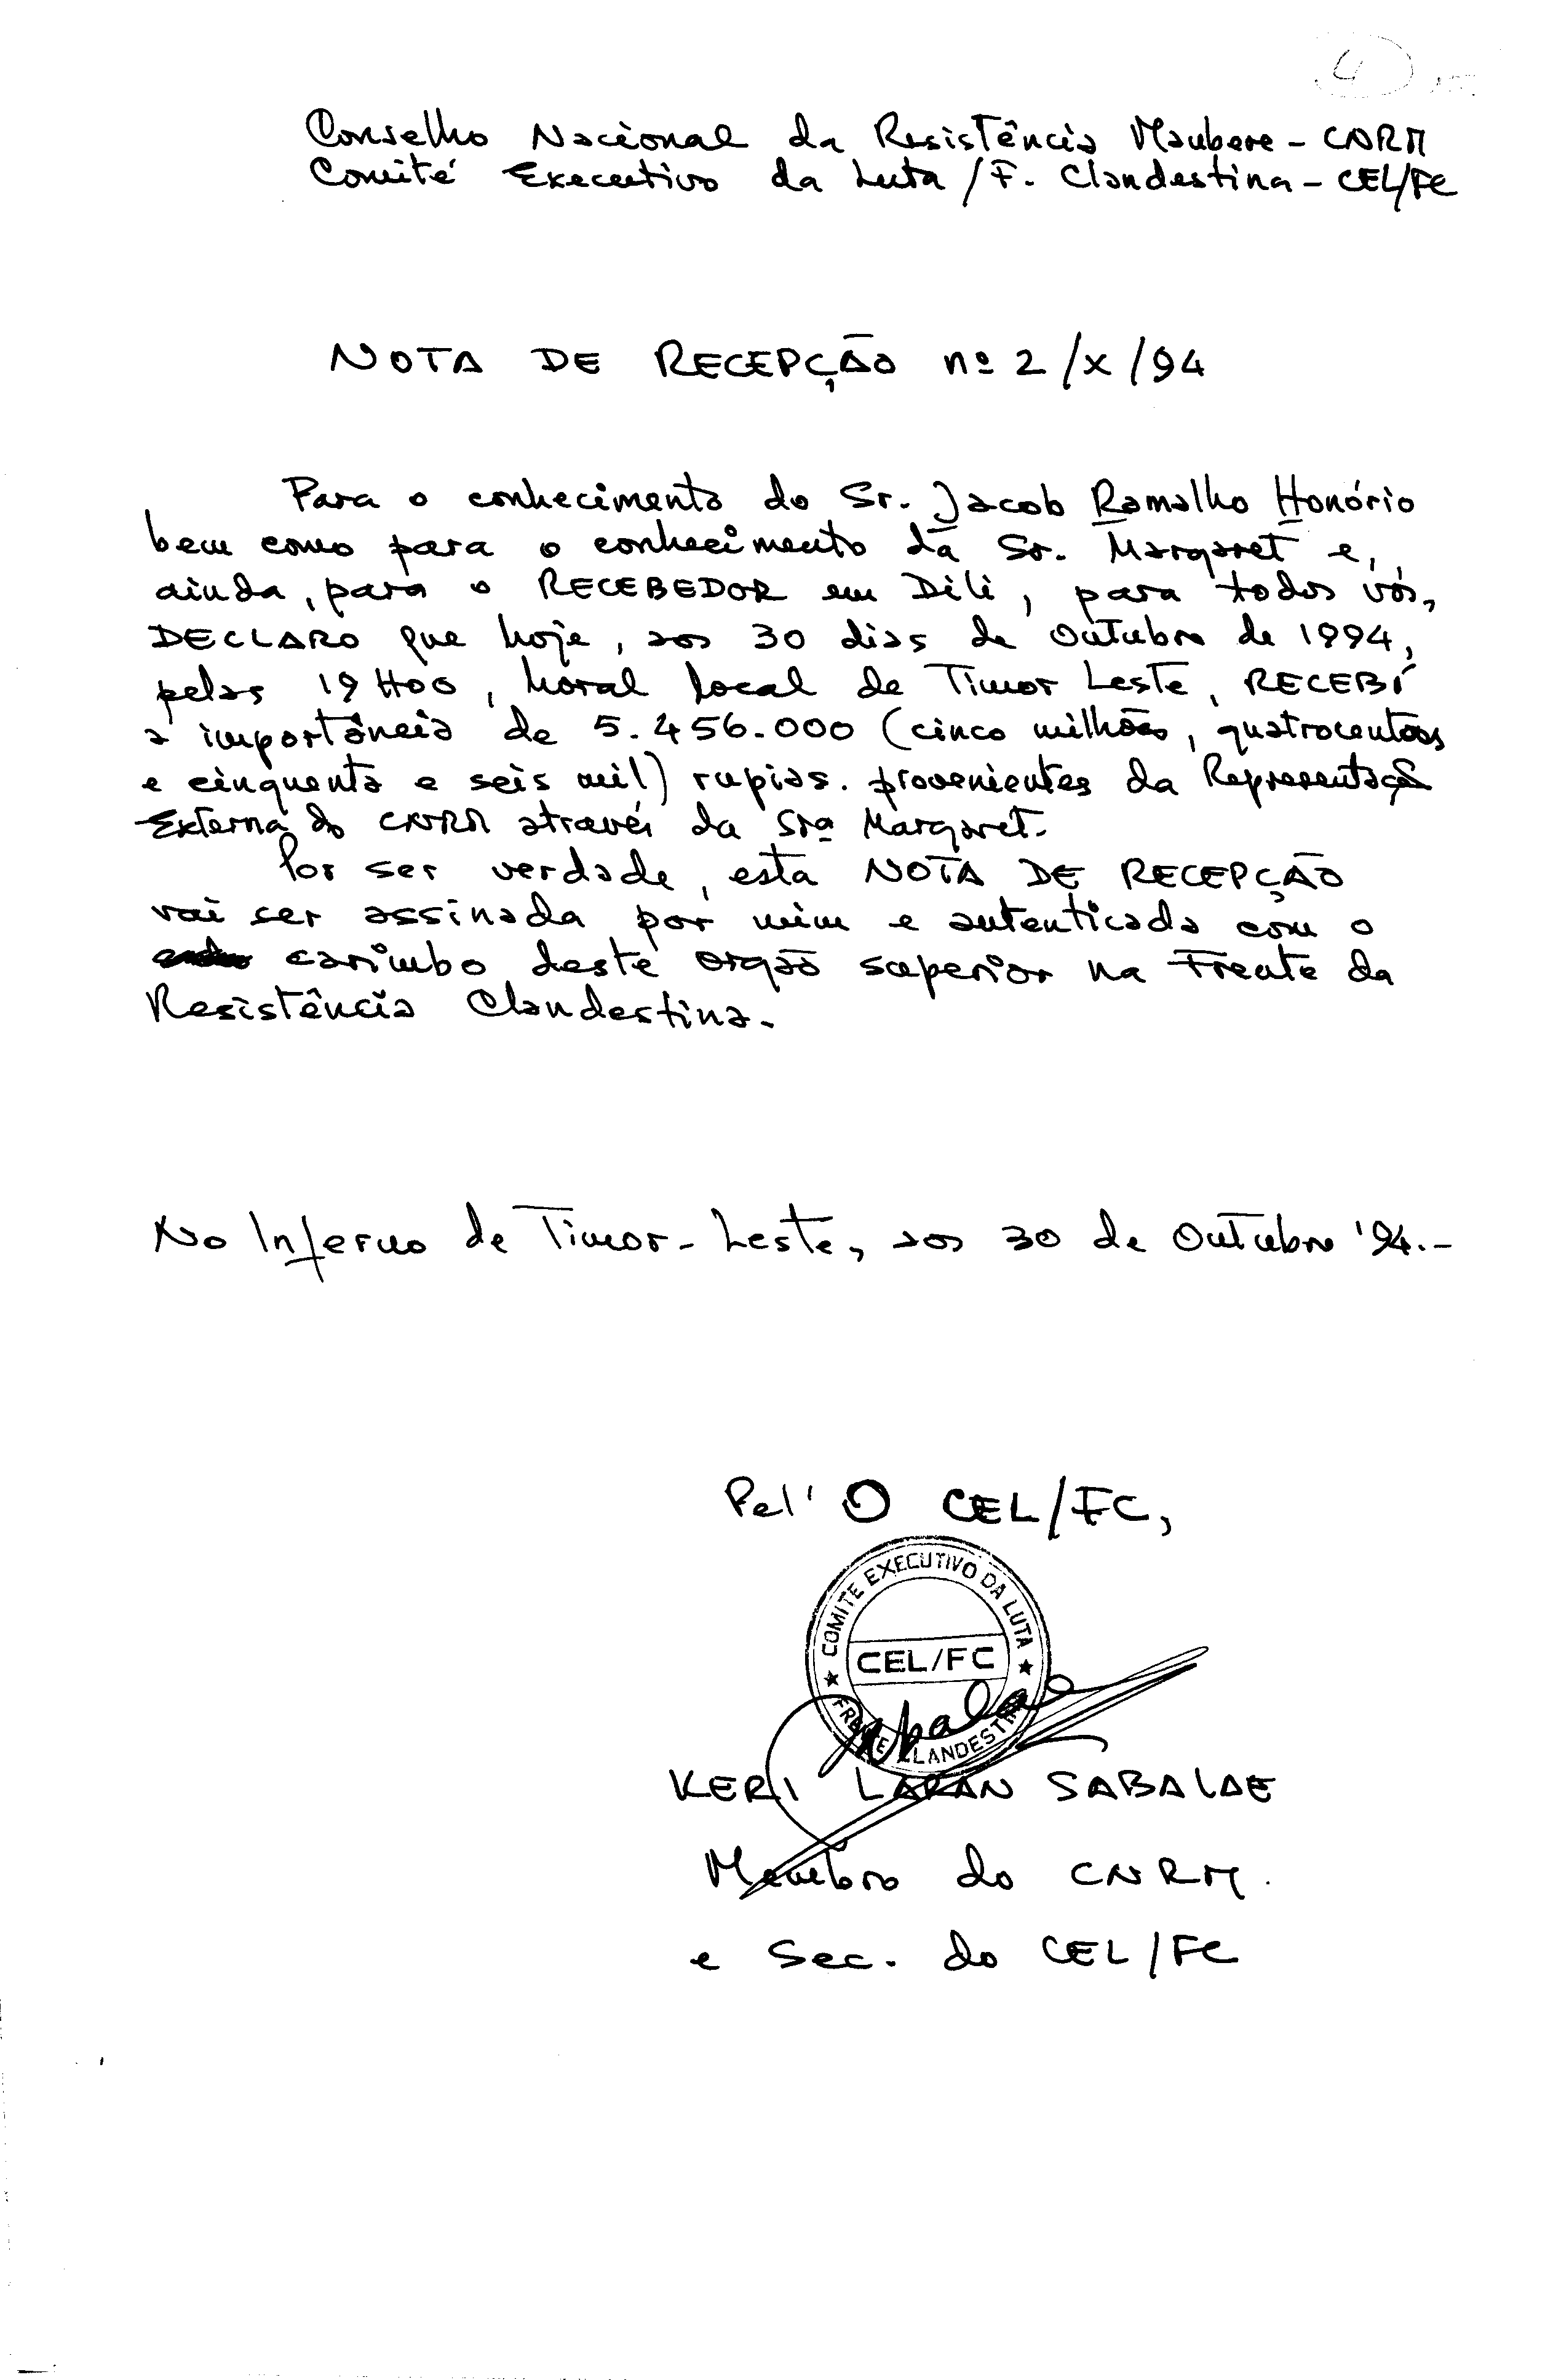 4
Conselho Nacional da Resistência Maubere - CNRM
Comité Executivo da Luta / F. Clandestina - CEL/FC
NOTA DE RECEPÇÃO nº 2/X/94
Para o conhecimento do Sr. Jacob Ramalho Honório
bem como para o conhecimento da Sr. Margaret e,
ainda, para o RECEBEDOR em Dili, para todos vós,
DECLARO que hoje, aos 30 dias de Outubro de 1994,
pelas 19H00, horal local de Timor Leste, RECEBÍ
a importância de 5.456.000 (cinco milhões, quatrocentos
e cinquenta e seis mil) rupias. provenientes da Representação
Externa do CNRM através da Srª Margaret.
Por ser verdade, esta NOTA DE RECEPÇÃO
vai ser assinada por mim e autenticada com o
carimbo deste orgão superior na Frente da
Resistência Clandestina.
No Inferno de Timor-Leste, aos 30 de Outubro '94.-
Pel' O CEL/FC,
COMITE EXECUTIVO DA LUTA
CEL/FC
FRENTE CLANDESTINA
Sabalae
KERI LARAN SABALAE
Membro do CNRM.
e Sec. do CEL/FC